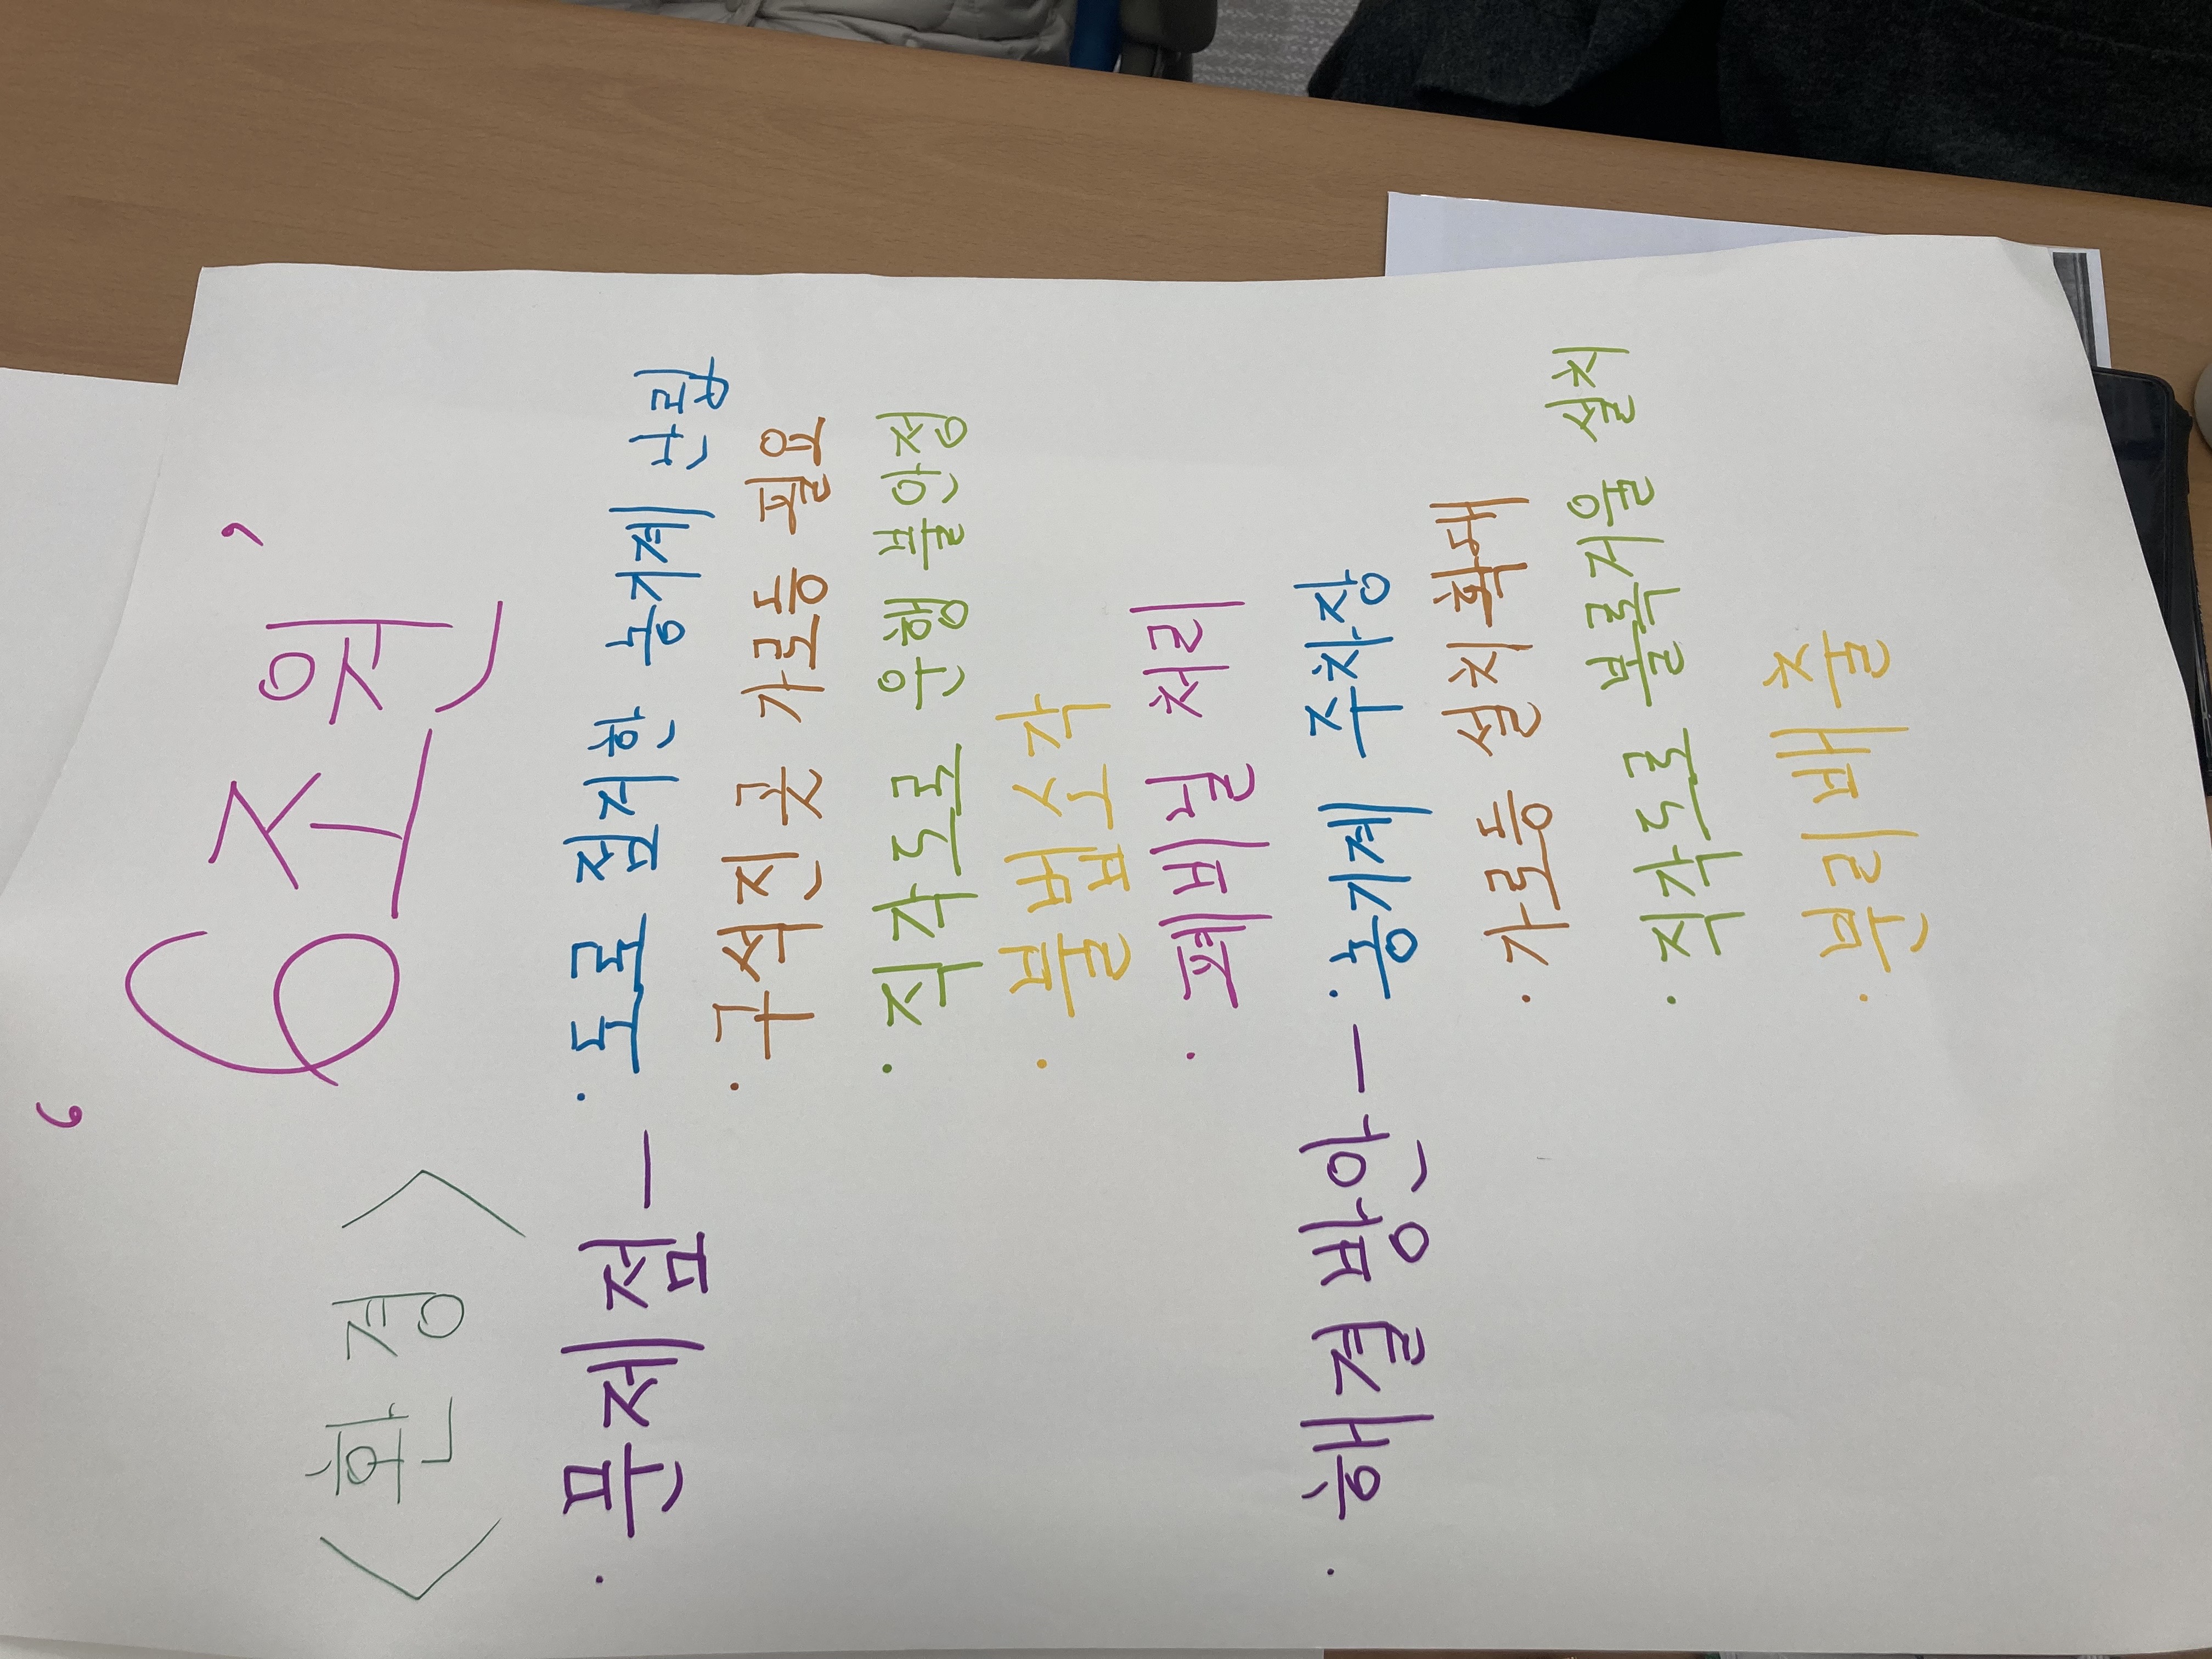 <환경>
‘6조원’
· 문제점 — · 도로 점거한 농기계 난립
· 구석진 곳 가로등 필요
· 직각도로 운행 불안정
· 불법소각
· 폐비닐 처리
· 해결 방안 — · 농기계 주차장
· 가로등 설치 확대
· 직각도로 볼록거울 설치
· 분리배출